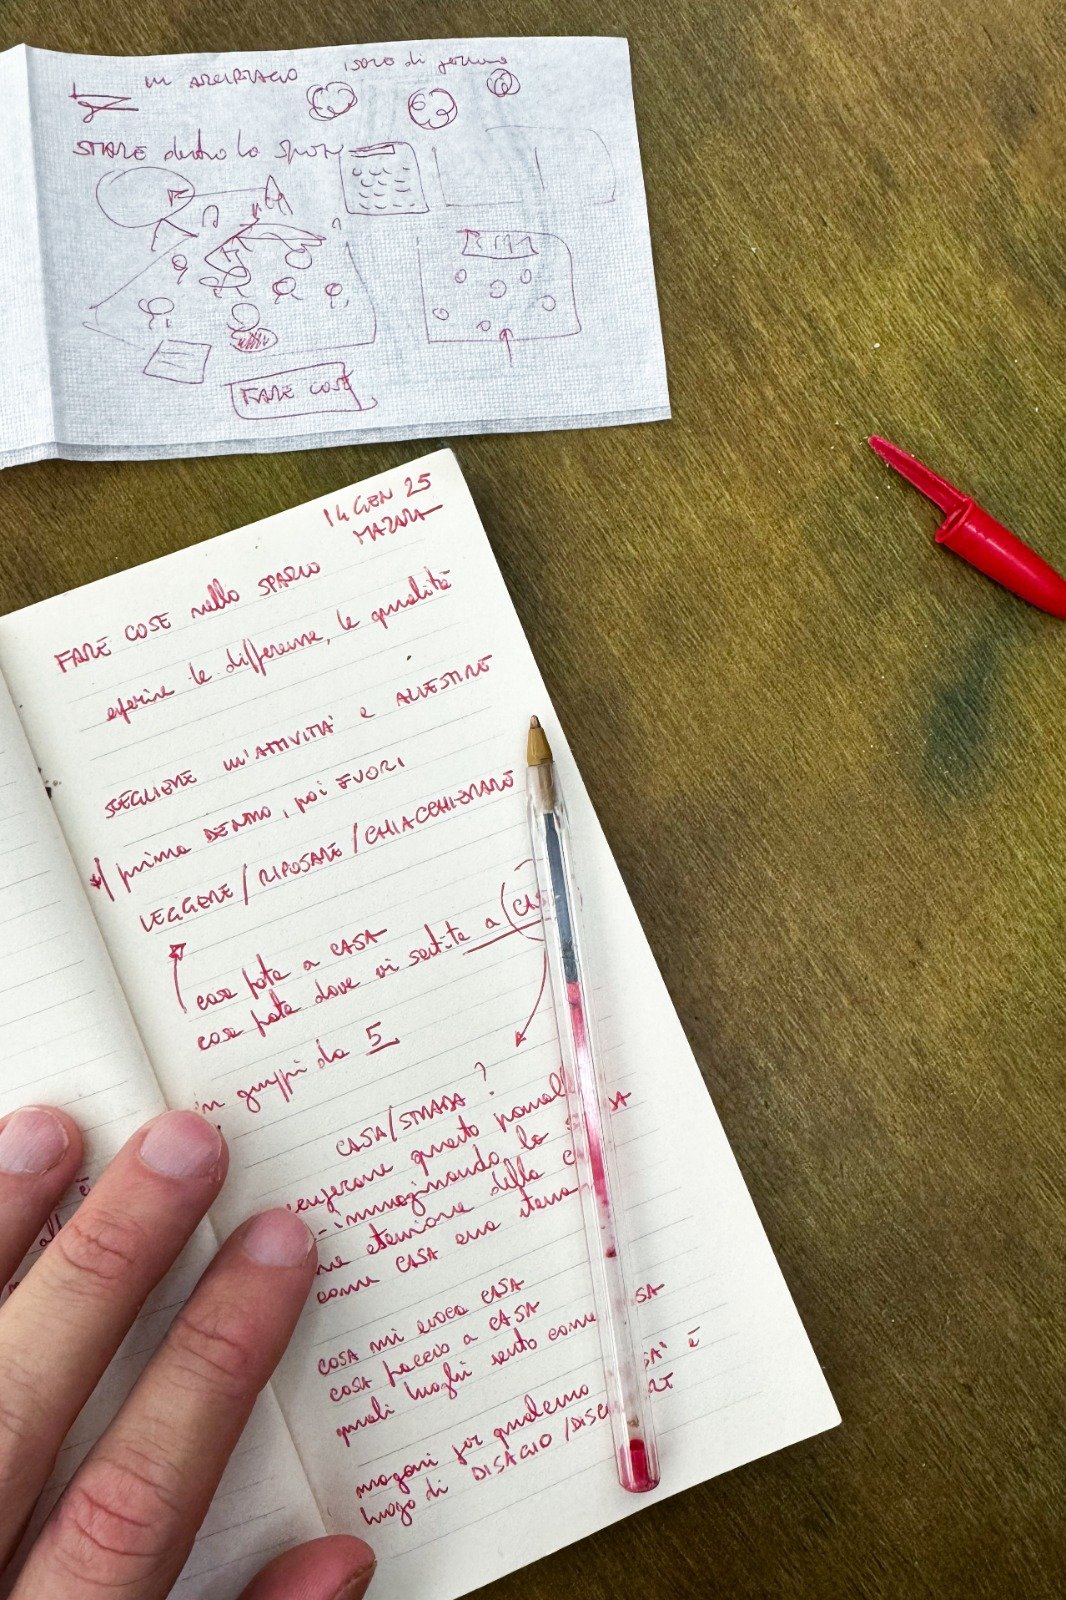 un ARCIPELAGO isole di
STARE dentro lo SPAZIO
FARE COSE
14 GEN 25
MAZARA
FARE COSE nello SPAZIO
esperire le differenze, le qualità
SCEGLIERE UN'ATTIVITÀ e ALLESTIRE
prima DENTRO, poi FUORI
LEGGERE / RIPOSARE / CHIACCHIERARE
cosa fate a CASA
cosa fate dove vi sentite a
in gruppi da 5
CASA/STRADA ?
questo
immaginando la
estensione della
come CASA
COSA mi evoca CASA
COSA faccio a CASA
quali luoghi sento come
magari per qualcuno è
luogo di DISAGIO